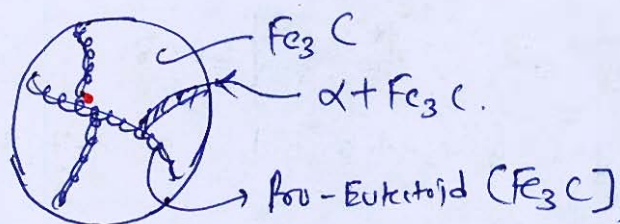 Fe₃ C
α + Fe₃ C.
Pro-Eutectoid (Fe₃C]